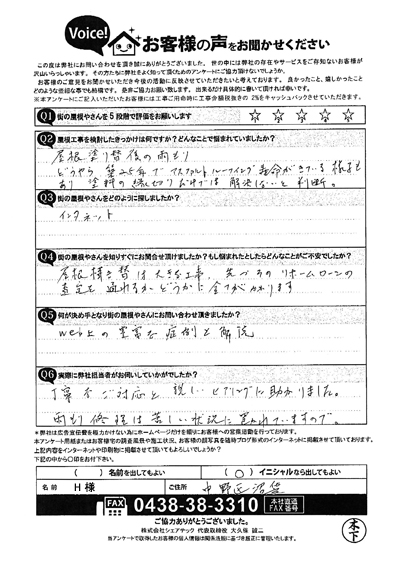 Voice!
お客様の声をお聞かせください
この度は弊社にお問い合わせを頂き誠にありがとうございました。世の中には弊社の存在やサービスをご存知ないお客様が
沢山いらっしゃいます。その方たちに弊社をよく知って頂くためのアンケートにご協力頂けないでしょうか。
お客様のご意見をお聞かせいただき今後の活動に反映させていただきたいと考えております。良かったこと、嬉しかったこと
どのような些細な事でも結構です。是非ご協力お願い致します。出来るだけ具体的に書いて頂ければ幸いです。
※本アンケートにご記入いただいたお客様には工事ご用命時に工事金額税抜きの2%をキャッシュバックさせていただきます。
Q1 街の屋根やさんを5段階で評価をお願いします ☆ ☆ ☆ ☆ ☆
Q2 屋根工事を検討したきっかけは何ですか?どんなことで悩まれていましたか?
屋根塗り替後の雨もり
どうやら 築25年でアスファルトルーフィング寿命がきている様子も
あり 塗料の縁切りだけでは 解決しないと判断。
Q3 街の屋根やさんをどのように探しましたか?
インタネット
Q4 街の屋根やさんを知りすぐにお問合せ頂けましたか?もし悩まれたとしたらどんなことがご不安でしたか?
屋根積き替は大きな工事、先づそのリホームローンの
査定を通れるかどうかに全てがかかります
Q5 何が決め手となり街の屋根やさんにお問い合わせ頂きましたか?
web上の豊富な症例と解説
Q6 実際に弊社担当者がお伺いしていかがでしたか?
丁寧なご対応と 詳しいヒアリングに助かりました。
雨動修理は苦しい状況に置かれていますので。
※弊社は広告宣伝費を極力かけない為にホームページだけを頼りにお客様への営業活動を行っております。
本アンケート用紙またはお客様宅の調査風景や施工状況、お客様の顔写真を随時ブログ形式のインターネットに掲載させて頂いております。
上記内容をインターネットや印刷物に掲載させて頂いてもよろしいでしょうか?
下記の中から○印をお付け下さい。
( ) 名前を出してもよい ( ○ ) イニシャルなら出してもよい
名前 H様 ご住所 中野区沼袋
FAX 0438-38-3310 本社直通 FAX番号
ご協力ありがとうございました。
株式会社シェアテック 代表取締役 大久保 誠二
当アンケートで取得したお客様の個人情報は関係法規に基づき厳正に管理いたします。
木下